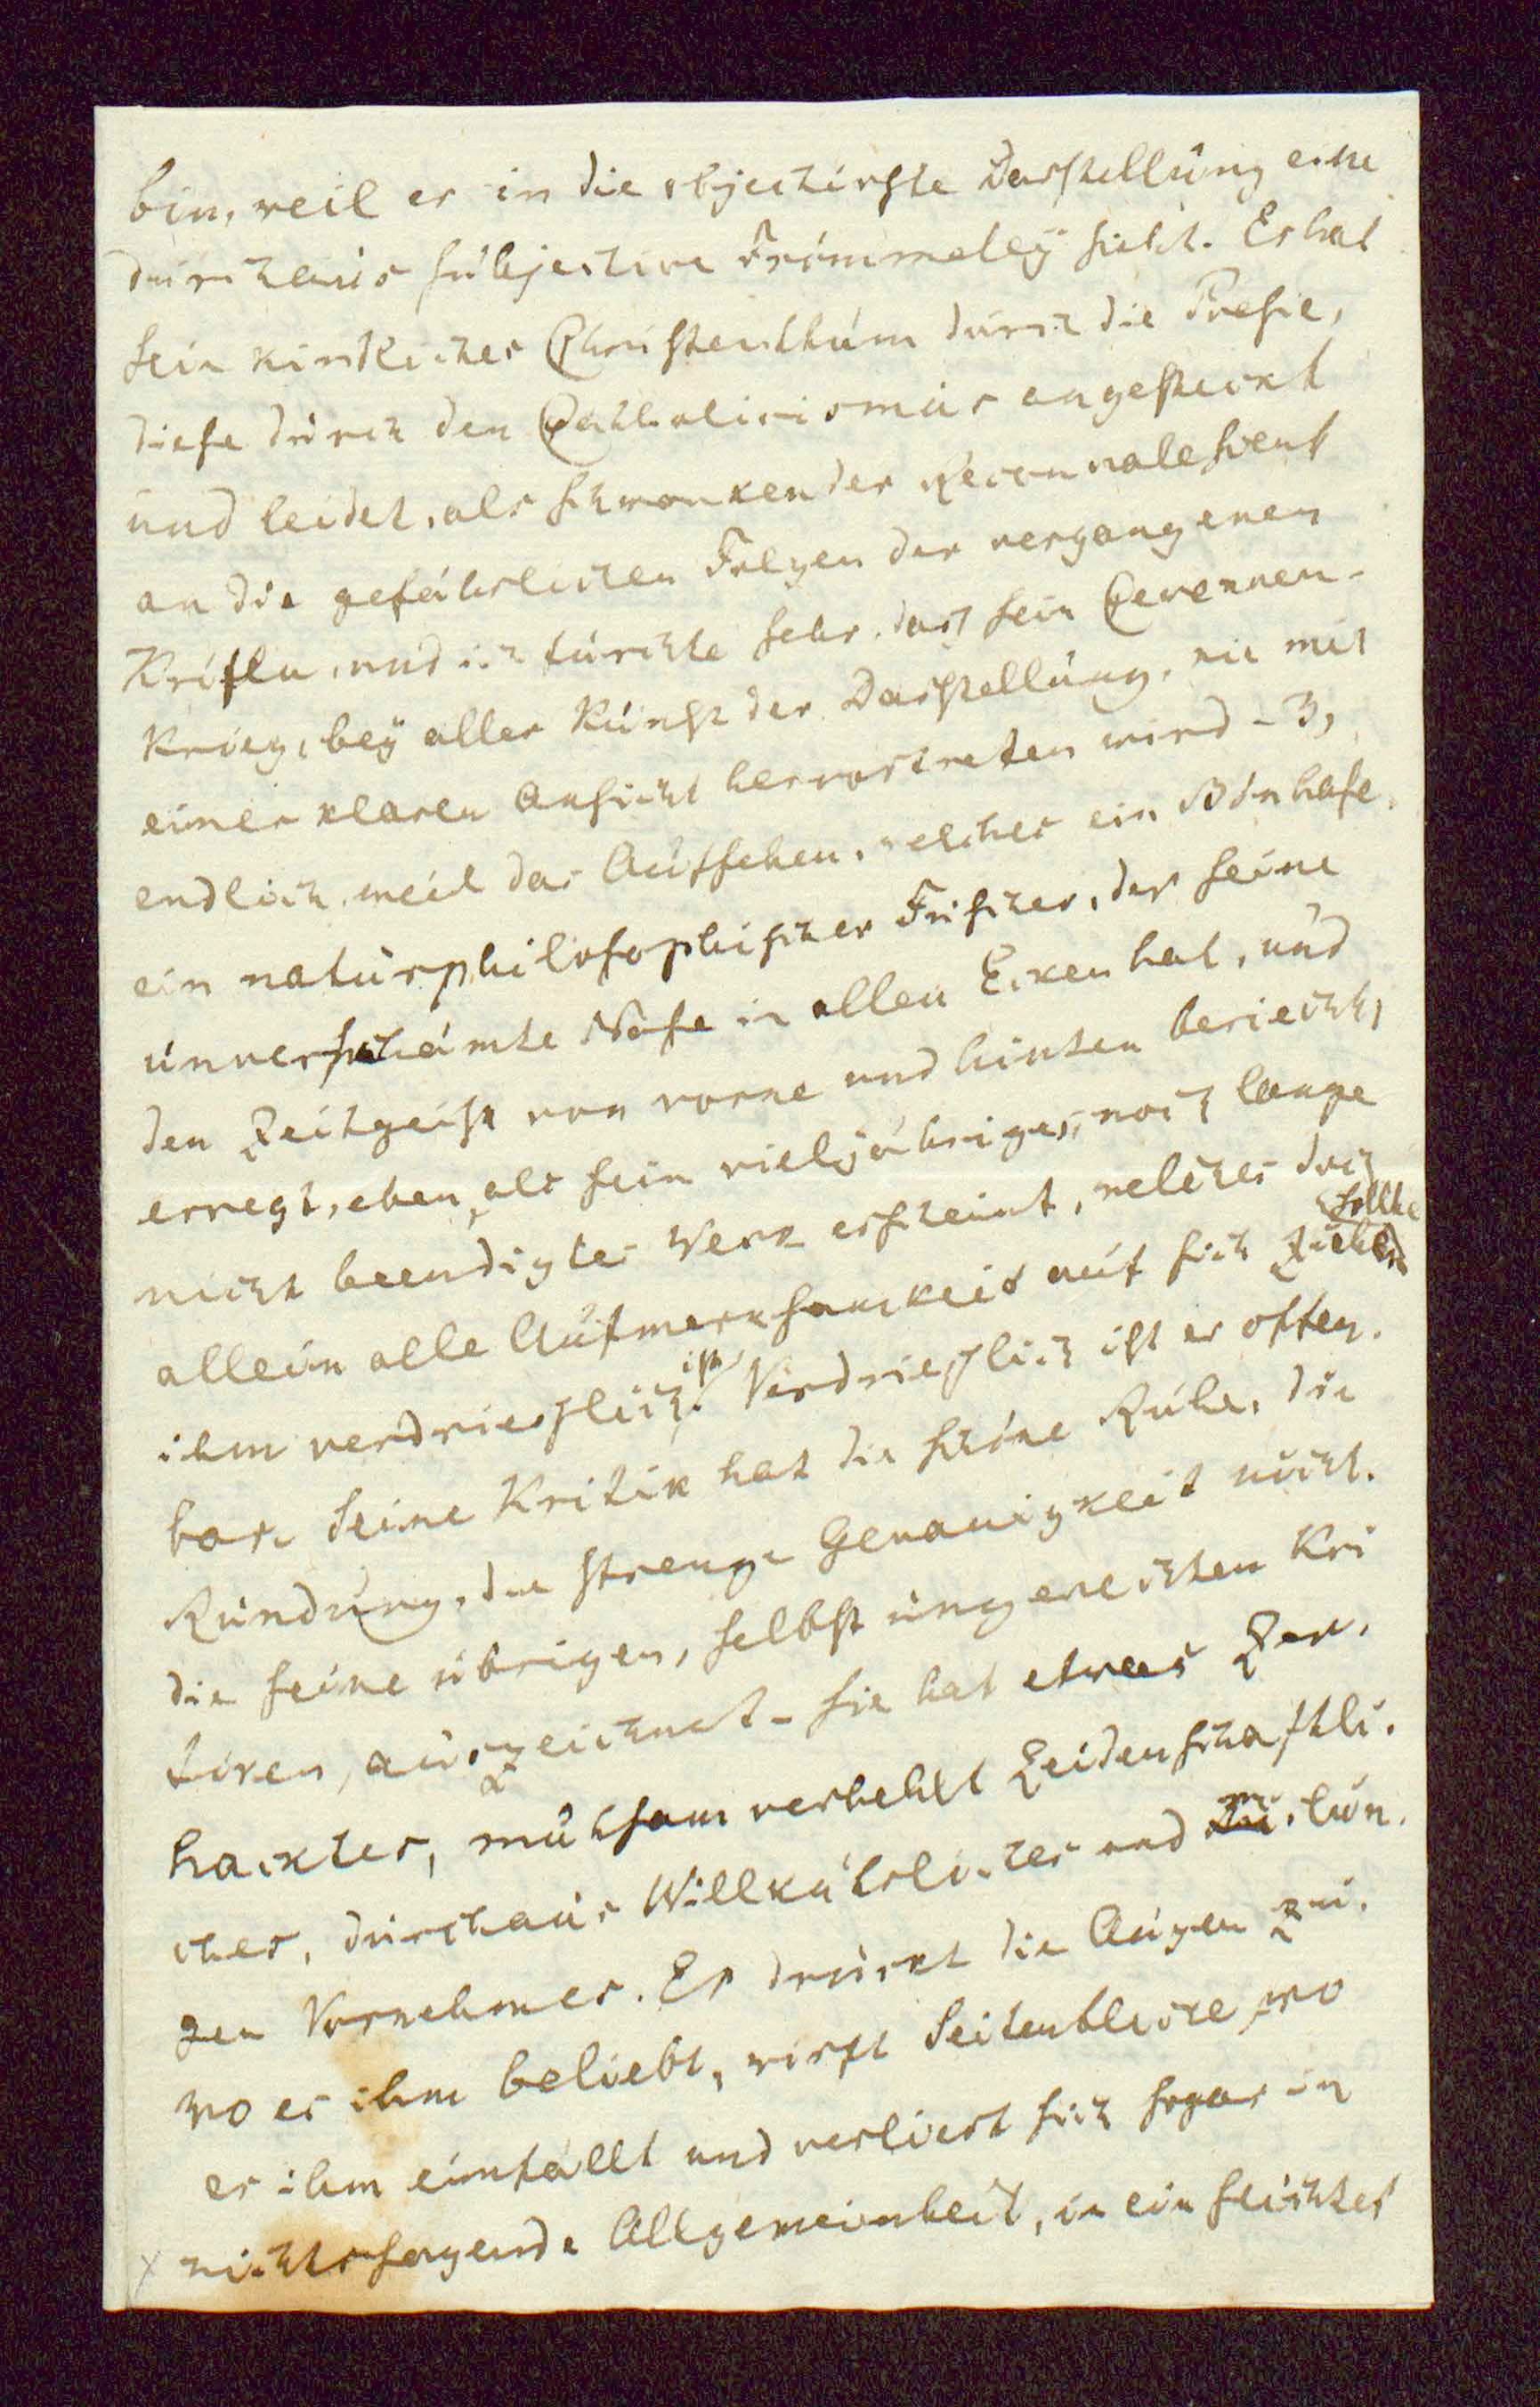 bin, weil er in die objectivste Darstellung eine
durchaus subjective Frömmeley sieht. Er hat
sein kindliches Christenthum durch die Poesie,
diese durch den Catholicismus angesteckt
und leidet, als schwankender Reconvalescent
an die gefährlichen Folgen der vergangenen
Krisen, und ich fürchte sehr, daß sein Cevennen-
Krieg, bey aller Kunst der Darstellung, nie mit
einer klaren Ansicht hervortreten wird – 3,
endlich, weil das Aufsehen, welches ein Bönhase,
ein naturphilosophischer Frischer, der seine
unverschämte Nase in allen Ecken hat, und
den Zeitgeist von vorne und hinten beriecht,
erregt, eben, als sein vieljähriges, noch lange
nicht beendigtes Werk erscheint, welches doch
allein alle Aufmerksamkeit auf sich ziehen sollte
ihm verdrieslich ist. Verdrieslich ist er offen-
bar. Seine Kritik hat die schöne Ruhe, die
Ründung, die strenge Genauigkeit nicht.
die seine übrigen, selbst ungerechten Kri
tiken, auszeichnet – sie hat etwas Zer-
hacktes, mühsam verhehlt Leidenschaftli-
ches, durchaus Willkührliches und mislun-
gen Vornehmes. Er drückt die Augen zu,
wo es ihm beliebt, wirft Seitenblicke, wo
es ihm einfällt und verliert sich sogar in
nichtssagende Allgemeinheit, in ein seichtes